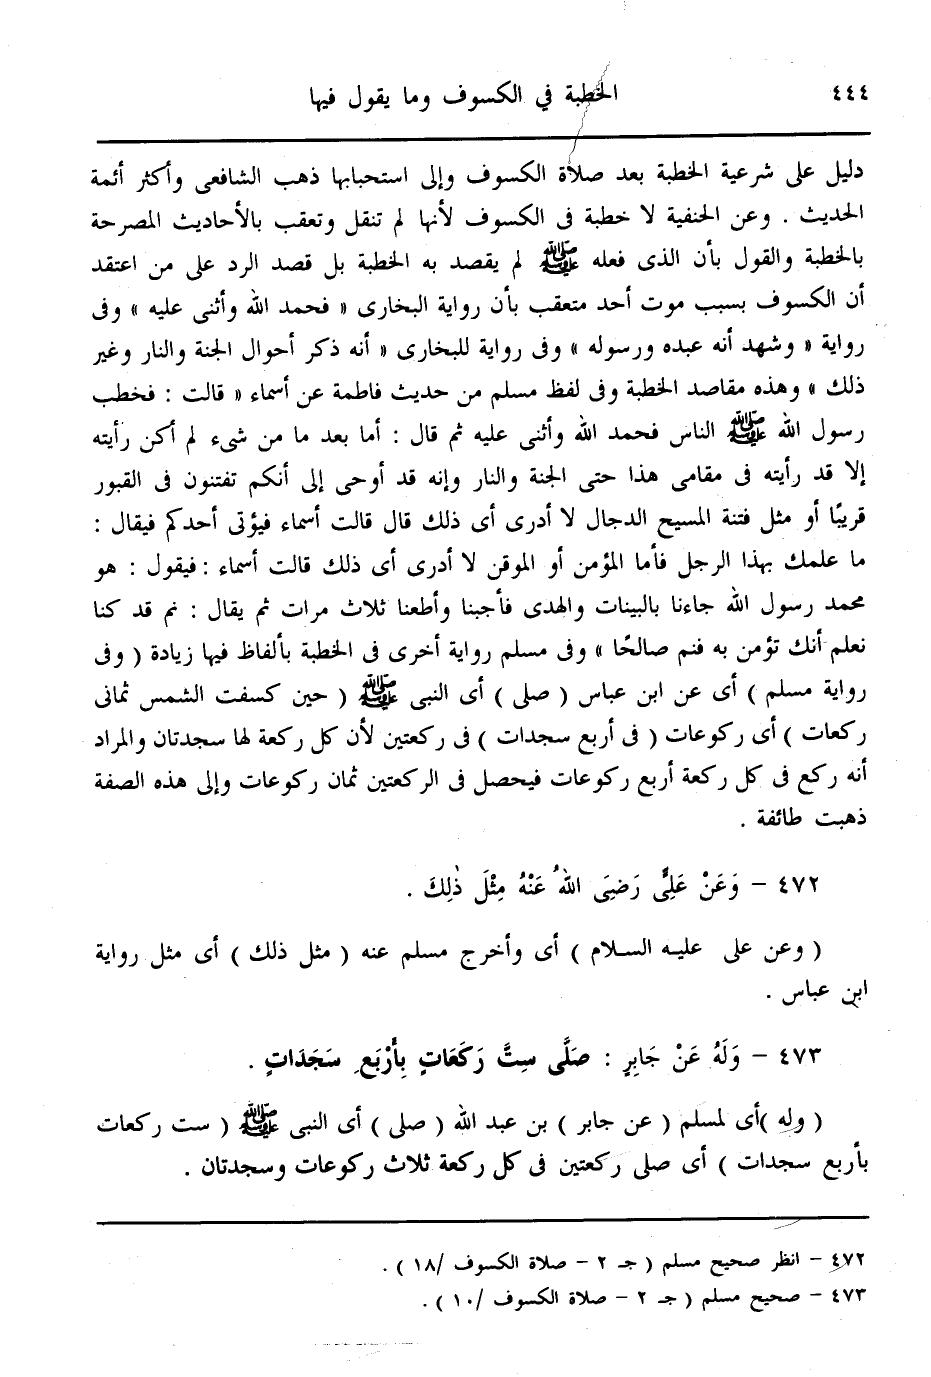 ٤٤٤
الخطبة في الكسوف وما يقول فيها
دليل على شرعية الخطبة بعد صلاة الكسوف وإلى استحبابها ذهب الشافعى وأكثر أئمة
الحديث . وعن الحنفية لا خطبة فى الكسوف لأنها لم تنقل وتعقب بالأحاديث المصرحة
بالخطبة والقول بأن الذى فعله ﷺ لم يقصد به الخطبة بل قصد الرد على من اعتقد
أن الكسوف بسبب موت أحد متعقب بأن رواية البخارى « فحمد الله وأثنى عليه » وفى
رواية « وشهد أنه عبده ورسوله » وفى رواية للبخارى « أنه ذكر أحوال الجنة والنار وغير
ذلك » وهذه مقاصد الخطبة وفى لفظ مسلم من حديث فاطمة عن أسماء « قالت : فخطب
رسول الله ﷺ الناس فحمد الله وأثنى عليه ثم قال : أما بعد ما من شىء لم أكن رأيته
إلا قد رأيته فى مقامى هذا حتى الجنة والنار وإنه قد أوحى إلى أنكم تفتنون فى القبور
قريبًا أو مثل فتنة المسيح الدجال لا أدرى أى ذلك قال قالت أسماء فيؤتى أحدكم فيقال :
ما علمك بهذا الرجل فأما المؤمن أو الموقن لا أدرى أى ذلك قالت أسماء : فيقول : هو
محمد رسول الله جاءنا بالبينات والهدى فأجبنا وأطعنا ثلاث مرات ثم يقال : نم قد كنا
نعلم أنك تؤمن به فنم صالحًا » وفى مسلم رواية أخرى فى الخطبة بألفاظ فيها زيادة ( وفى
رواية مسلم ) أى عن ابن عباس ( صلى ) أى النبى ﷺ ( حين كسفت الشمس ثمانى
ركعات ) أى ركوعات ( فى أربع سجدات ) فى ركعتين لأن كل ركعة لها سجدتان والمراد
أنه ركع فى كل ركعة أربع ركوعات فيحصل فى الركعتين ثمان ركوعات وإلى هذه الصفة
ذهبت طائفة .
٤٧٢ – وَعَنْ عَلِىٍّ رَضِىَ اللهُ عَنْهُ مِثْلَ ذٰلِكَ .
( وعن على عليه السلام ) أى وأخرج مسلم عنه ( مثل ذلك ) أى مثل رواية
ابن عباس .
٤٧٣ – وَلَهُ عَنْ جَابِرٍ : صَلَّى سِتَّ رَكَعَاتٍ بِأَرْبَعِ سَجَدَاتٍ .
( وله )أى لمسلم ( عن جابر ) بن عبد الله ( صلى ) أى النبى ﷺ ( ست ركعات
بأربع سجدات ) أى صلى ركعتين فى كل ركعة ثلاث ركوعات وسجدتان .
٤٧٢ – انظر صحيح مسلم ( جـ ٢ – صلاة الكسوف /١٨ ) .
٤٧٣ – صحيح مسلم ( جـ ٢ – صلاة الكسوف /١٠ ) .